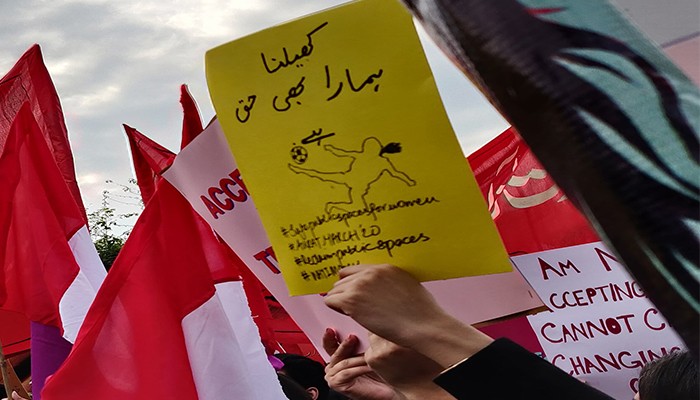 کھیلنا
ہمارا بھی حق
ہے
#safepublicspacesforwomen
#AURATMARCH'20
#reclaimpublicspaces
ACCE
AM N
ACCEPTING
CANNOT C
CHANGING